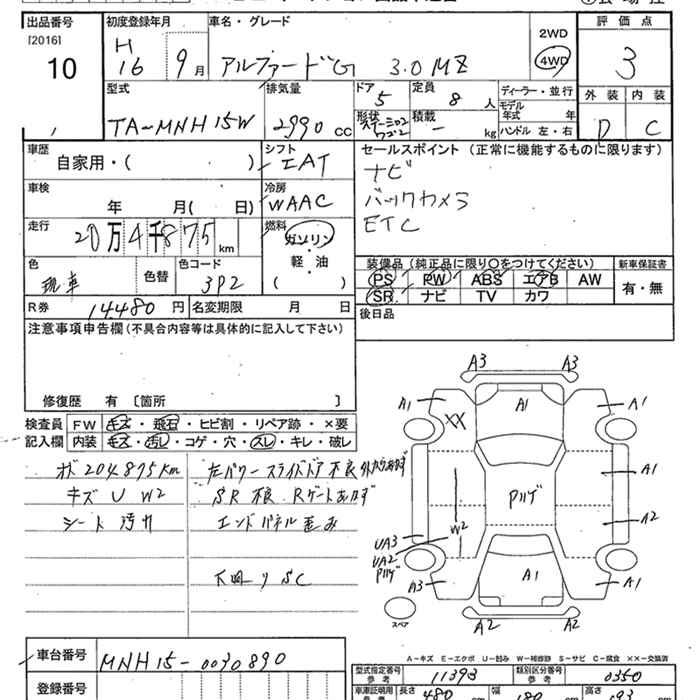 出品番号 初度登録年月 車名・グレード 評価点
[2016] H 2WD
10 16 9月 アルファードG 3.0MZ 4WD 3
型式 排気量 ドア 定員 ディーラー・並行 外装 内装
5 8人 モデル年式 年
TA-MNH15W 2990cc 形状 積載 - kg ハンドル 左・右 D C
車歴 シフト セールスポイント (正常に機能するものに限ります)
自家用・( ) IAT ナビ
車検 冷房 バックカメラ
年 月( 日) WAAC ETC
走行 燃料
20万4千875km ガソリン
軽・油
色 色替 色コード ( ) 装備品 (純正品に限り○をつけてください) 新車保証書
3P2 PS PW ABS エアB AW 有・無
SR ナビ TV カワ
R券 14480円 名変期限 月 日 後日品
注意事項申告欄(不具合内容等は具体的に記入して下さい)
修復歴 有 [箇所 ]
検査員 FW キズ・飛石・ヒビ割・リペア跡・×要
記入欄 内装 キズ・汚レ・コゲ・穴・スレ・キレ・破レ
204875km 左パワースライドドア不良
キズ U W2 SR不良 Rゲートあかず
シート汚れ エンドパネル歪み
下廻りSC
A3 A3
A1 A1 A1
XX
A1
W2 A2
UA3
UA2
A3 A1 A1
スペア A2 A2
A-キズ E-エクボ U-凹み W-補修跡 S-サビ C-腐食 ××-交換済
車台番号 MNH15-0030890
型式指定番号 参考 11393 類別区分番号 参考 0350
登録番号 車庫証明用 参考 長さ 480 幅 180 高さ 193